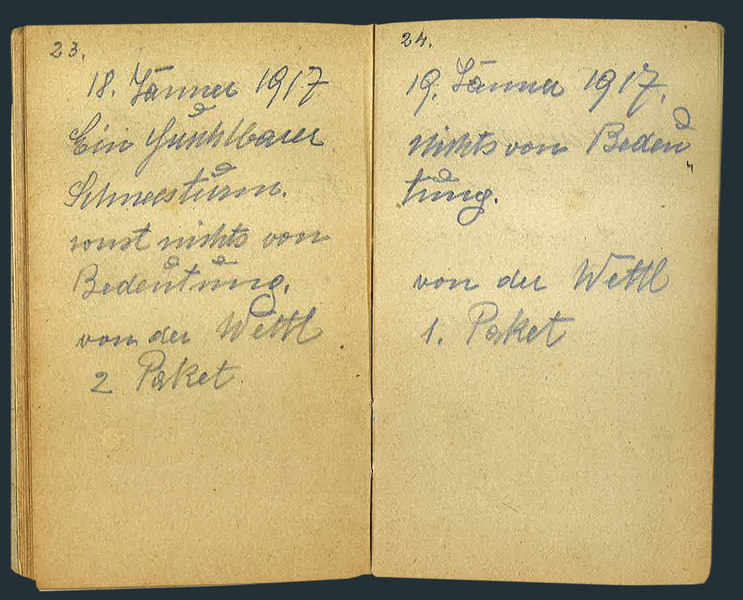 23.
18. Jänner 1917
Ein furchtbarer
Schneesturm.
sonst nichts von
Bedeutung.
von der Wettl
2 Paket
24.
19. Jänner 1917.
nichts von Bedeu„
tung.
von der Wettl
1. Paket